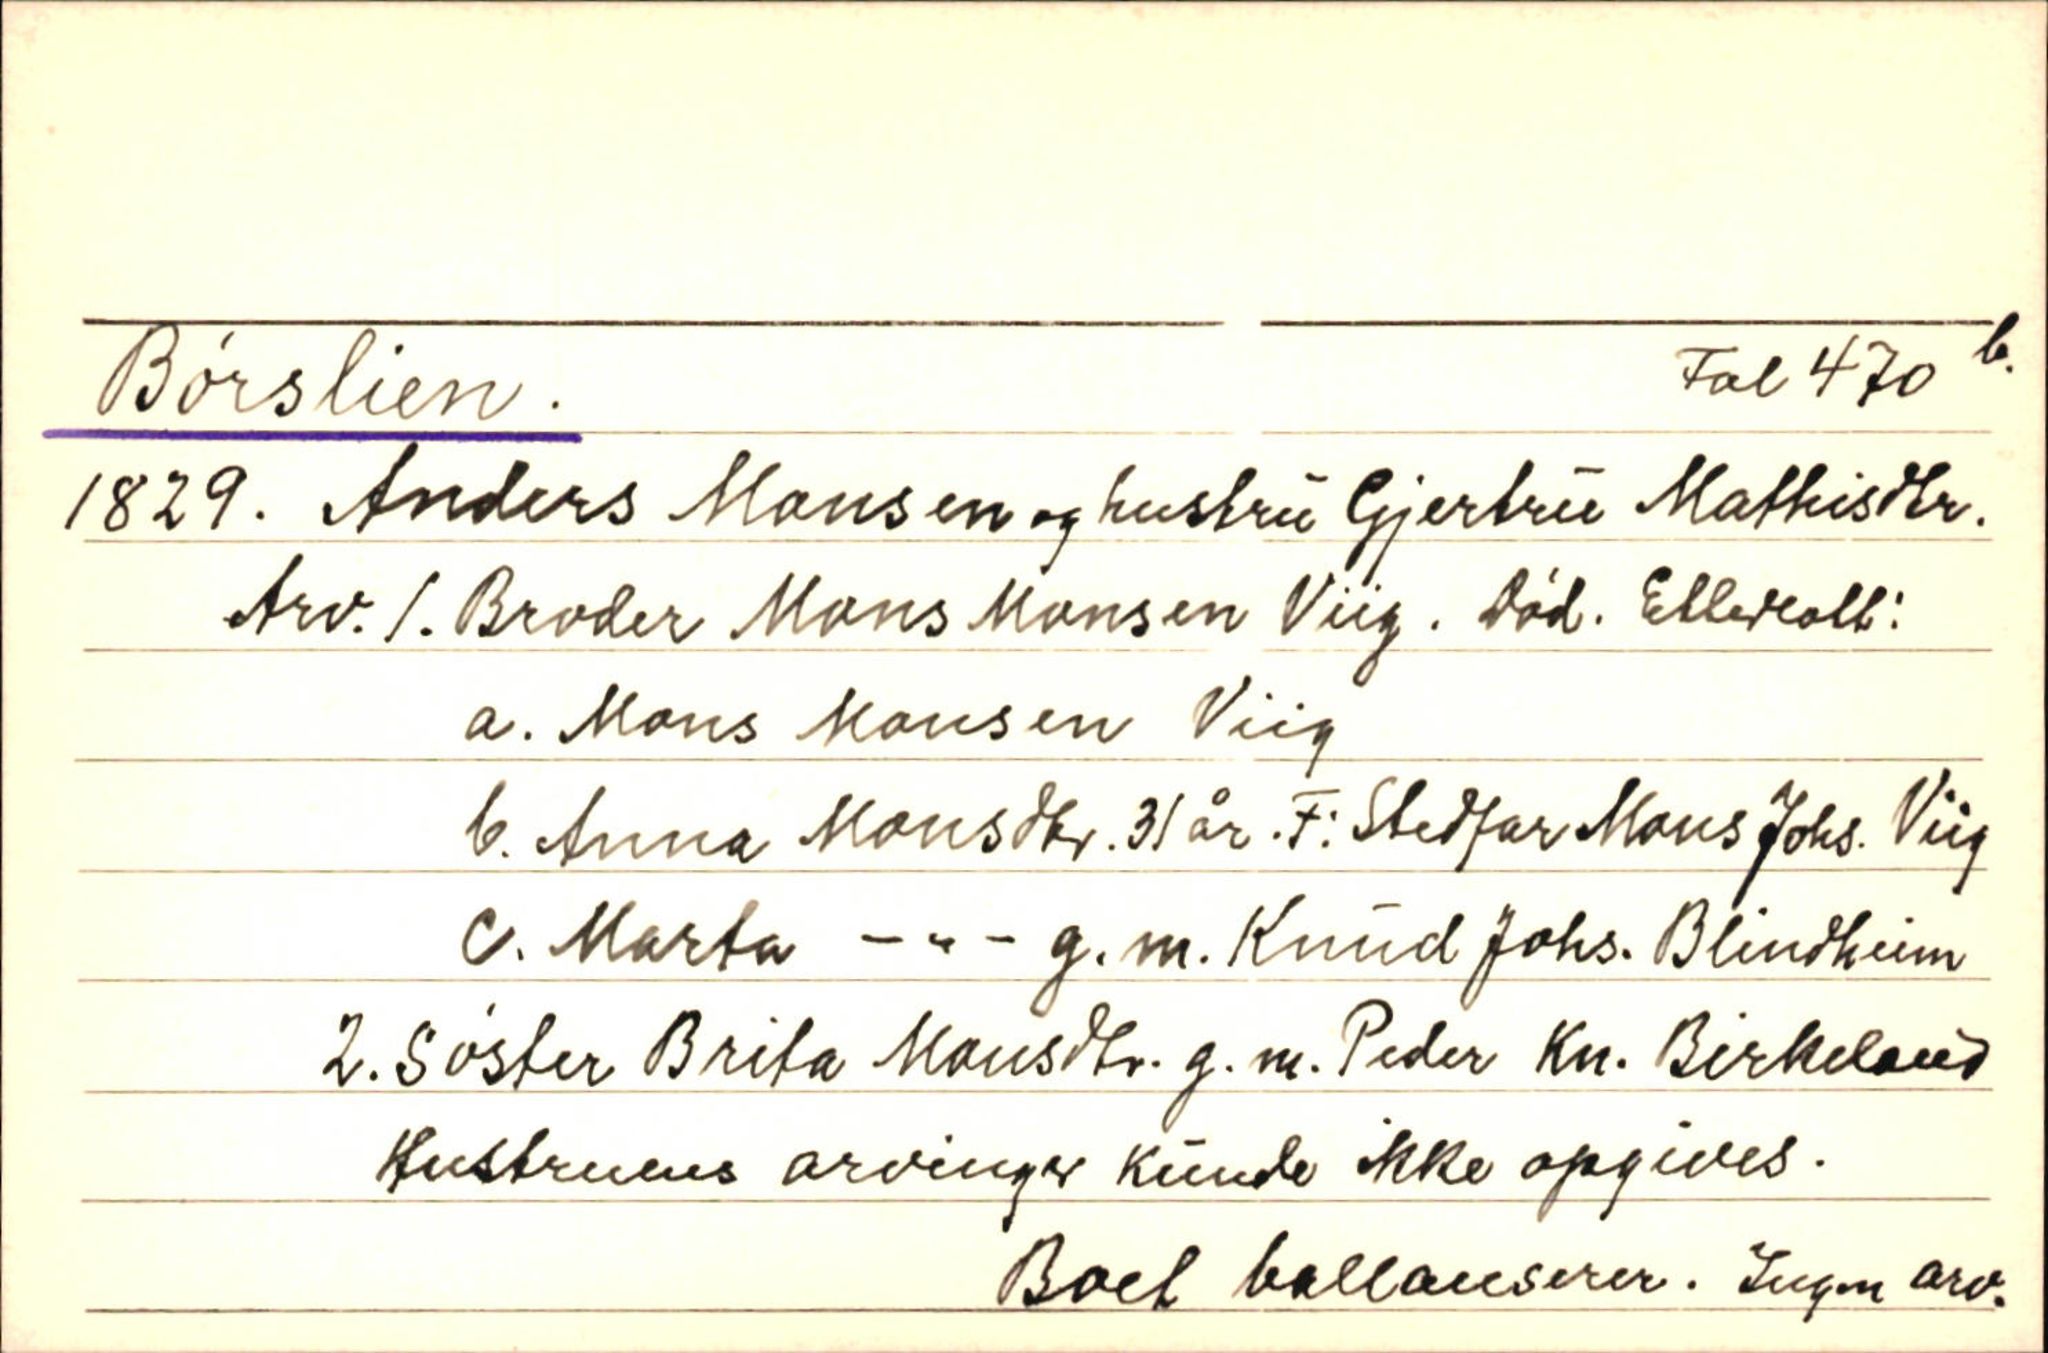 Börslien. Fol 470 b.
1829. Anders Monsen og hustru Gjertru Mathisdtr.
Arv. 1. Broder Mons Monsen Viig. Död. Efterlatt:
a. Mons Monsen Viig
b. Anna Monsdtr. 31 år. F: Stedfar Mons Johs. Viig
c. Marta - " - g. m. Knud Johs. Blindheim
2. Söster Brita Monsdtr. g. m. Peder Kn. Birkeland
Hustruens arvinger kunde ikke opgives.
Boet ballanserer. Ingen arv.